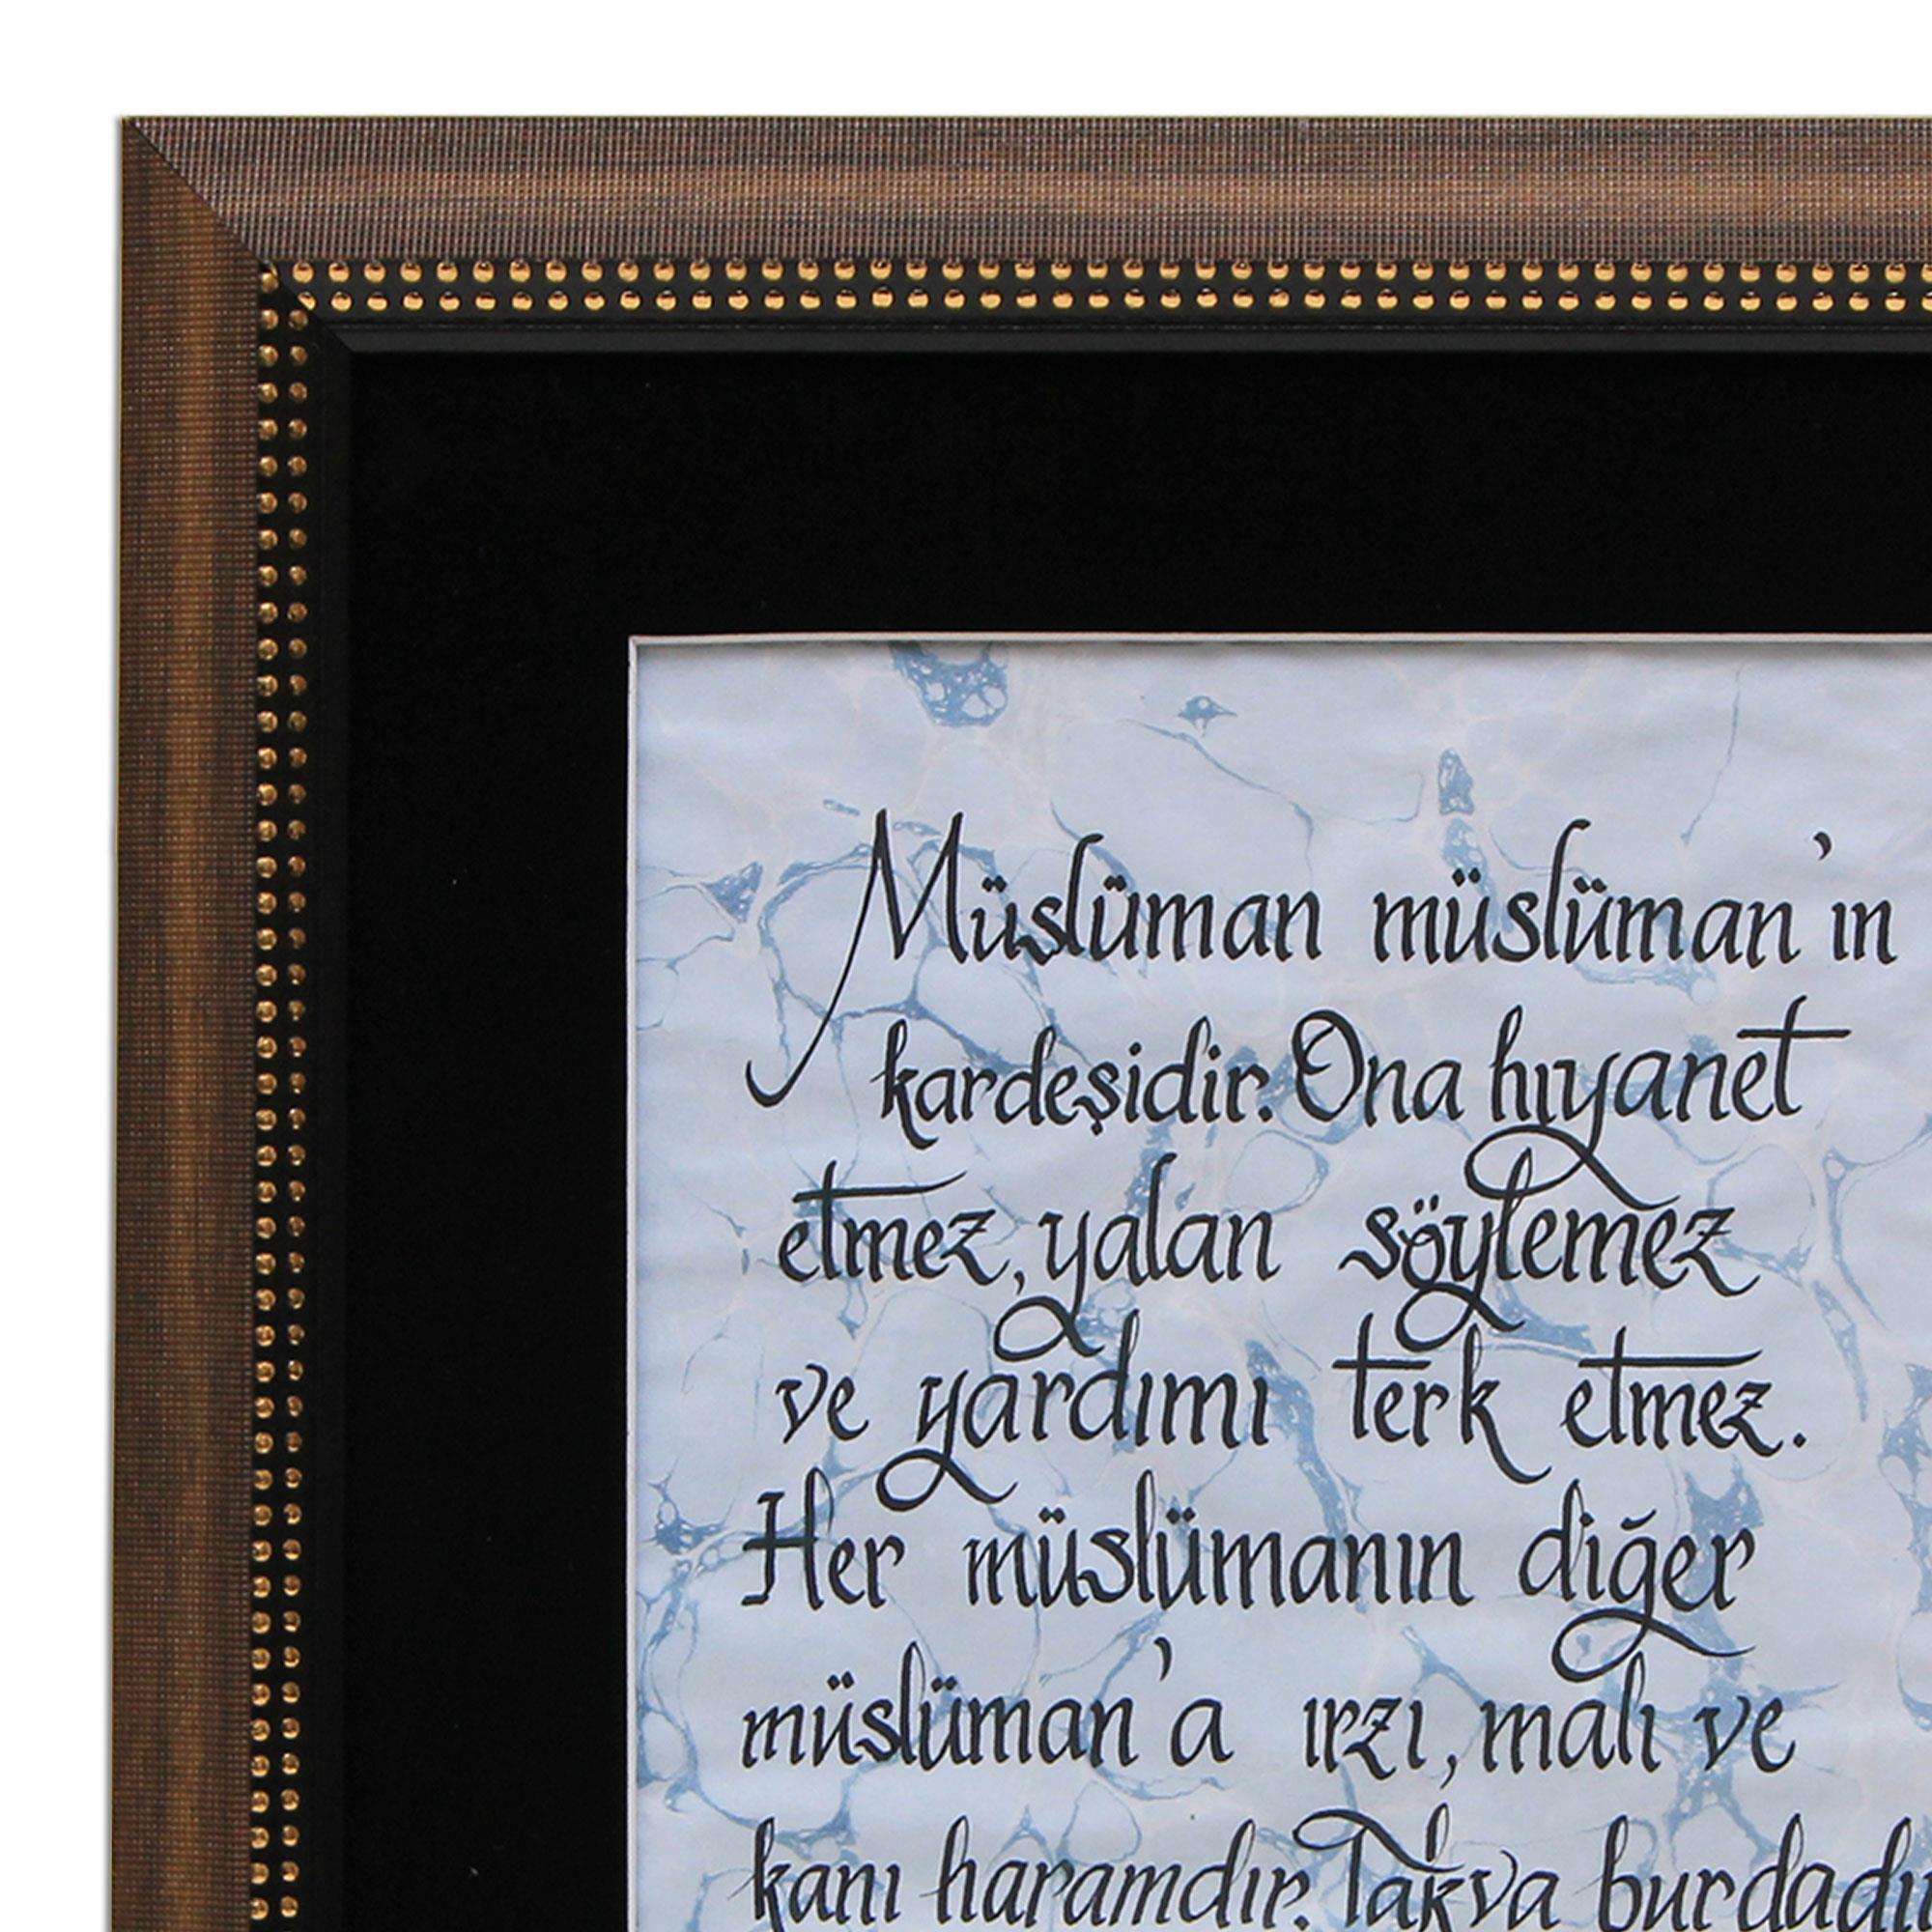 Müslüman müslüman'ın
kardeşidir. Ona hıyanet
etmez, yalan söylemez
ve yardımı terk etmez.
Her müslümanın diğer
müslüman'a ırzı, malı ve
kanı haramdır. Takva burdadı